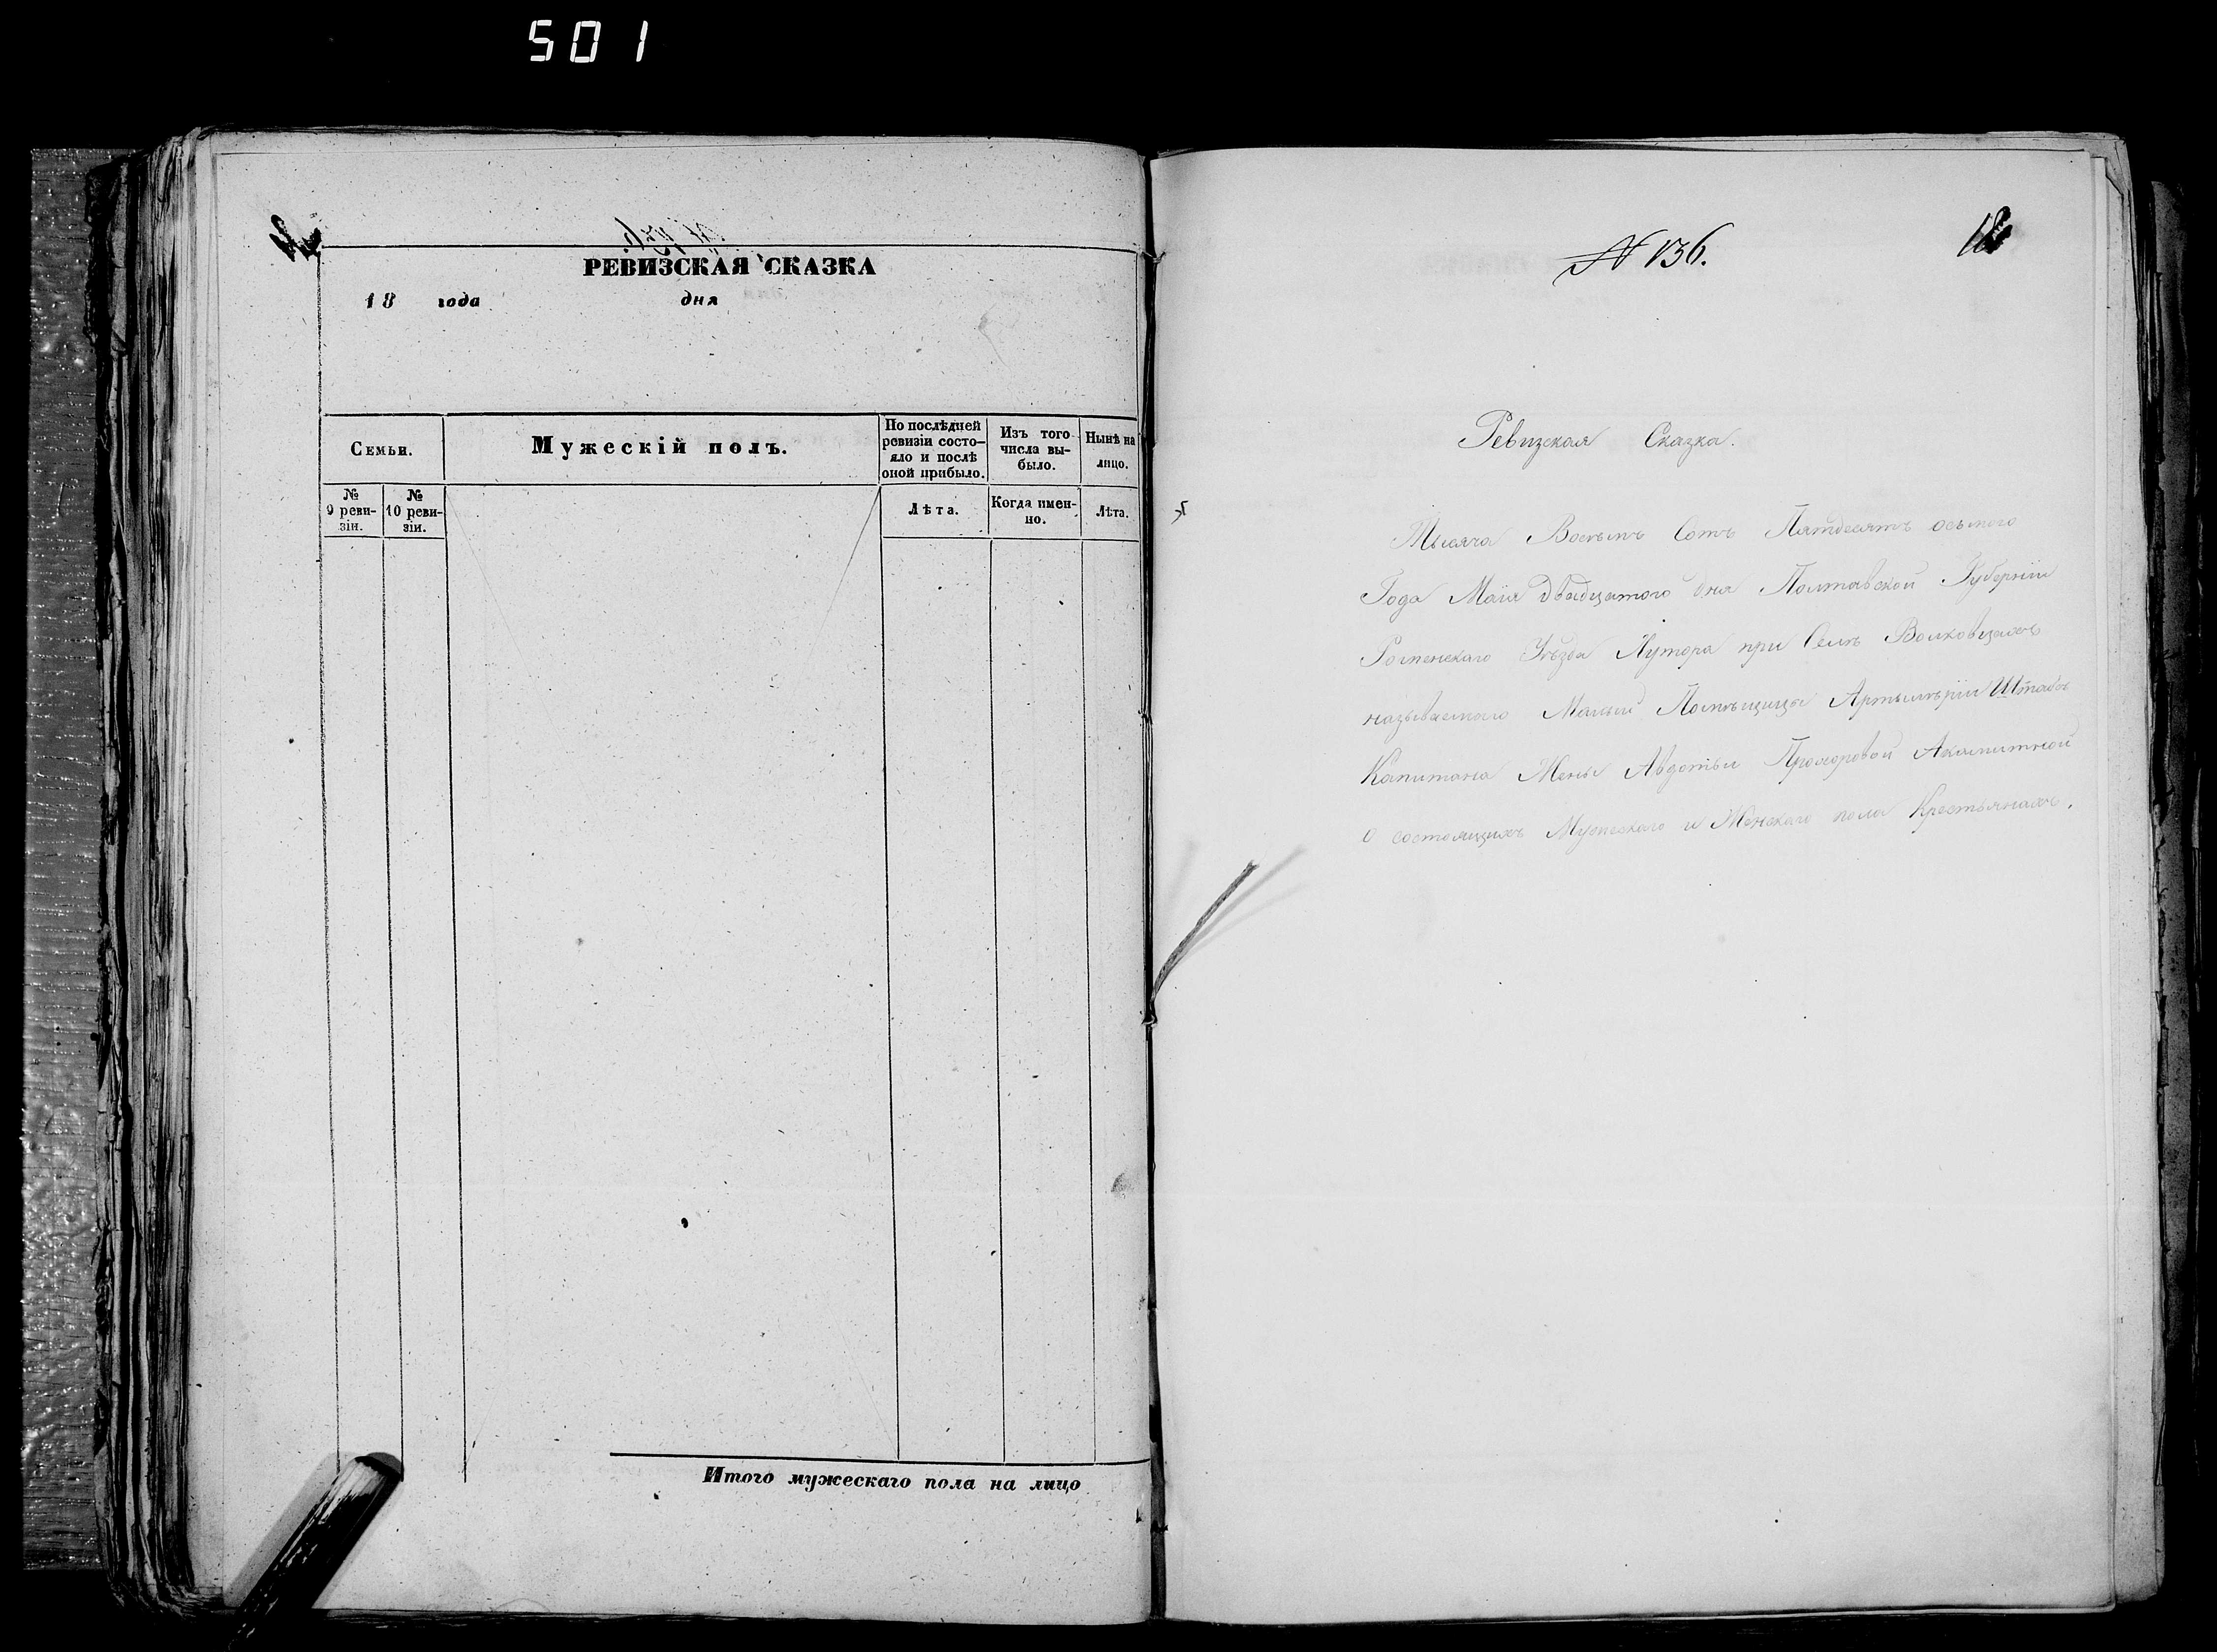 501
РЕВИЗСКАЯ СКАЗКА
18 года дня
Семьи.
Мужескій полъ.
По послѣдней ревизіи состо-
яло и послѣ оной прибыло.
Изъ того числа вы-
было.
Нынѣ на лицо.
№ 9 реви-
зіи.
№ 10 реви-
зіи.
Лѣта.
Когда имен-
но.
Лѣта.
Итого мужескаго пола на лицо
№ 136.
Ревизская Сказка.
Тысяча Восемь Сотъ Пятдесятъ осьмого
Года Маія двадцатого дня Полтавской Губерніи
Роменскаго Уѣзда Хутора при Селѣ Волковцахъ
называемого Помѣщицы Артилѣріи Штабсъ
Капитана Жены Авдотьи Прохоровой
О состоящихъ Мужескаго и Женскаго пола Крестьянахъ.